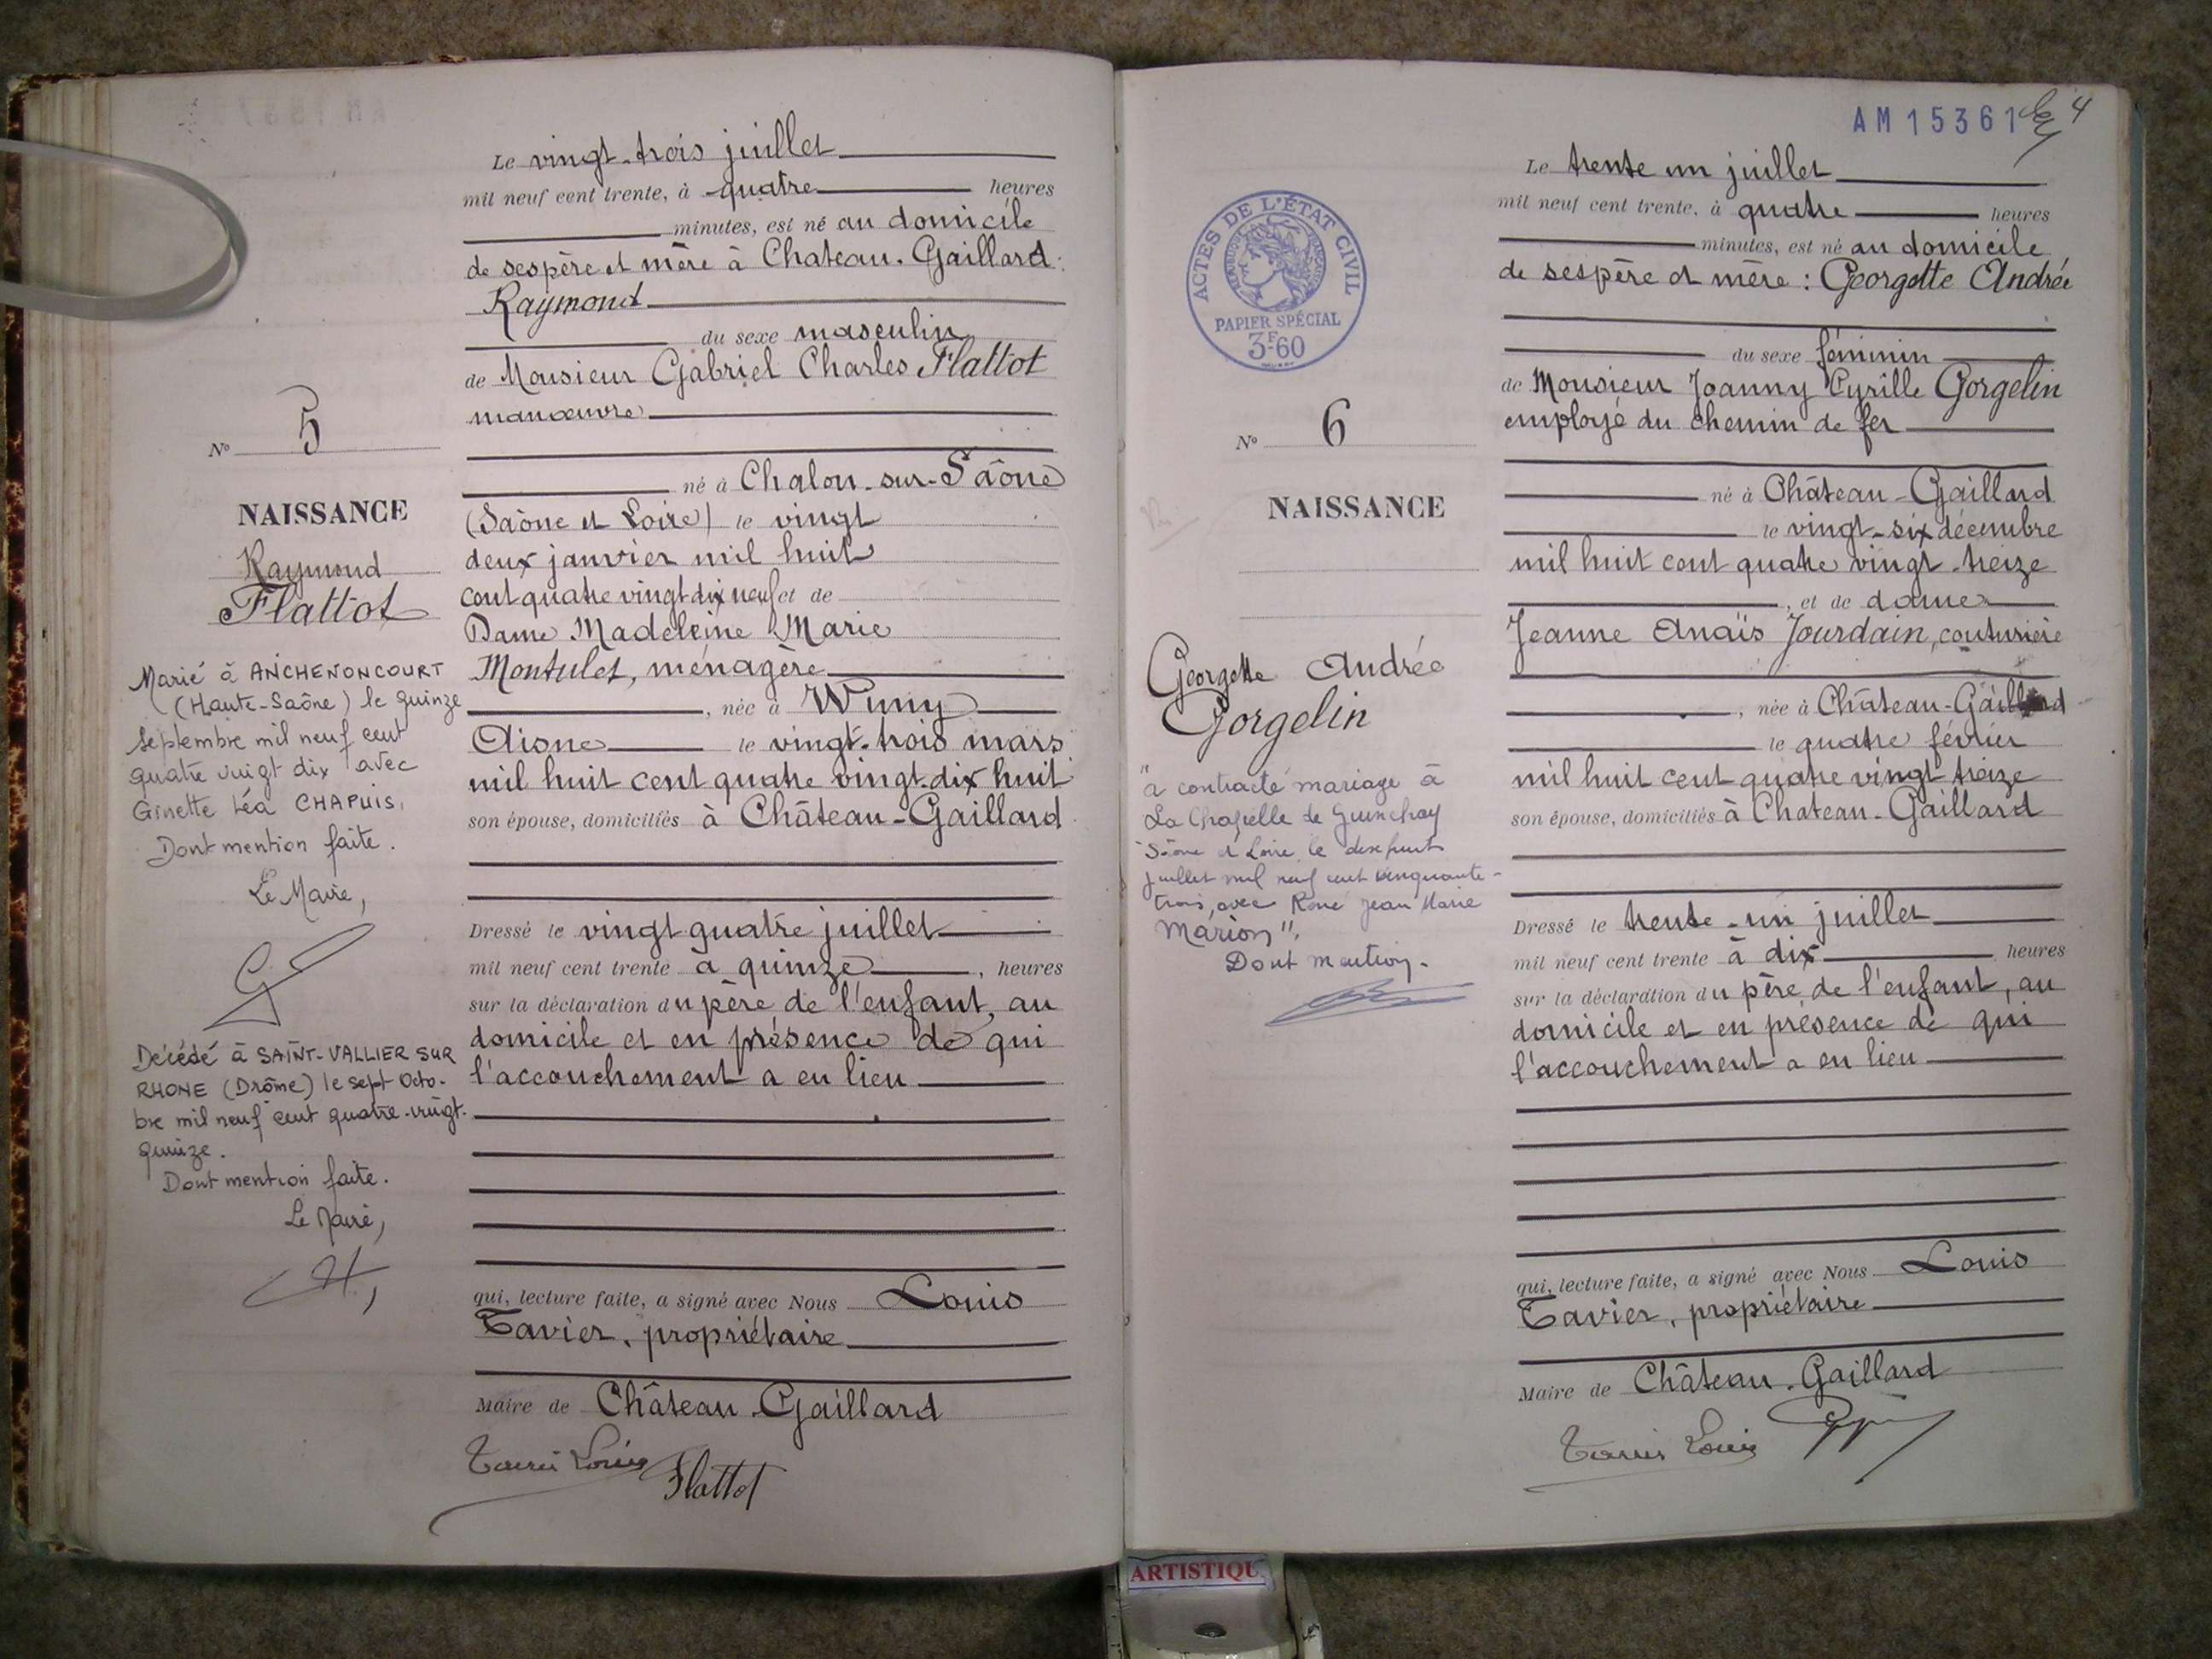 Le vingt-trois juillet
mil neuf cent trente, à quatre heures
minutes, est né au domicile
de ses père et mère à Chateau-Gaillard:
Raymond
du sexe masculin
de Monsieur Gabriel Charles Flattot
manœuvre
né à Chalon-sur-Saône
(Saône et Loire) le vingt
deux janvier mil huit
cent quatre vingt dix neuf et de
Dame Madeleine Marie
Montulet, ménagère
, née à Wimy
Aisne le vingt-trois mars
mil huit cent quatre vingt-dix huit
son épouse, domiciliés à Château-Gaillard
Dressé le vingt quatre juillet
mil neuf cent trente à quinze, heures
sur la déclaration du père de l'enfant, au
domicile et en présence de qui
l'accouchement a eu lieu
qui, lecture faite, a signé avec Nous Louis
Tavier, propriétaire
Maire de Château-Gaillard
Tavier Louis
Flattot
No 5
NAISSANCE
Raymond
Flattot
Marié à ANCHENONCOURT
(Haute-Saône) le quinze
septembre mil neuf cent
quatre vingt dix avec
Ginette Léa CHAPUIS.
Dont mention faite.
Le Maire,
Décédé à SAINT-VALLIER SUR
RHONE (Drôme) le sept Octo-
bre mil neuf cent quatre-vingt-
quinze.
Dont mention faite.
Le Maire,
AM 15361
4
ACTES DE L'ÉTAT CIVIL
RÉPUBLIQUE FRANÇAISE
PAPIER SPÉCIAL
3F60
Le trente un juillet
mil neuf cent trente, à quatre heures
minutes, est né au domicile
de ses père et mère : Georgette Andrée
du sexe féminin
de Monsieur Joanny Cyrille Gorgelin
employé du chemin de fer
né à Château-Gaillard
le vingt-six décembre
mil huit cent quatre vingt-treize
, et de dame
Jeanne Anaïs Jourdain, couturière
, née à Château-Gaillard
le quatre février
mil huit cent quatre vingt treize
son épouse, domiciliés à Chateau-Gaillard
Dressé le trente-un juillet
mil neuf cent trente à dix heures
sur la déclaration du père de l'enfant, au
domicile et en présence de qui
l'accouchement a eu lieu
qui, lecture faite, a signé avec Nous Louis
Tavier, propriétaire
Maire de Château-Gaillard
Tavier Louis
No 6
NAISSANCE
Georgette Andrée
Gorgelin
"a contracté mariage à
La Chapelle de Guinchay
Saône et Loire, le dix huit
juillet mil neuf cent cinquante-
trois, avec René Jean Marie
Marion".
Dont mention.
ARTISTIQU